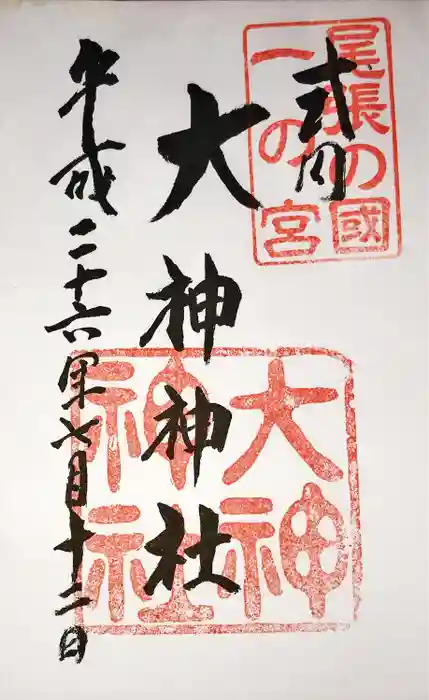 式内
尾張の國
一の宮
大神神社
大神
神社
平成二十六年七月十二日